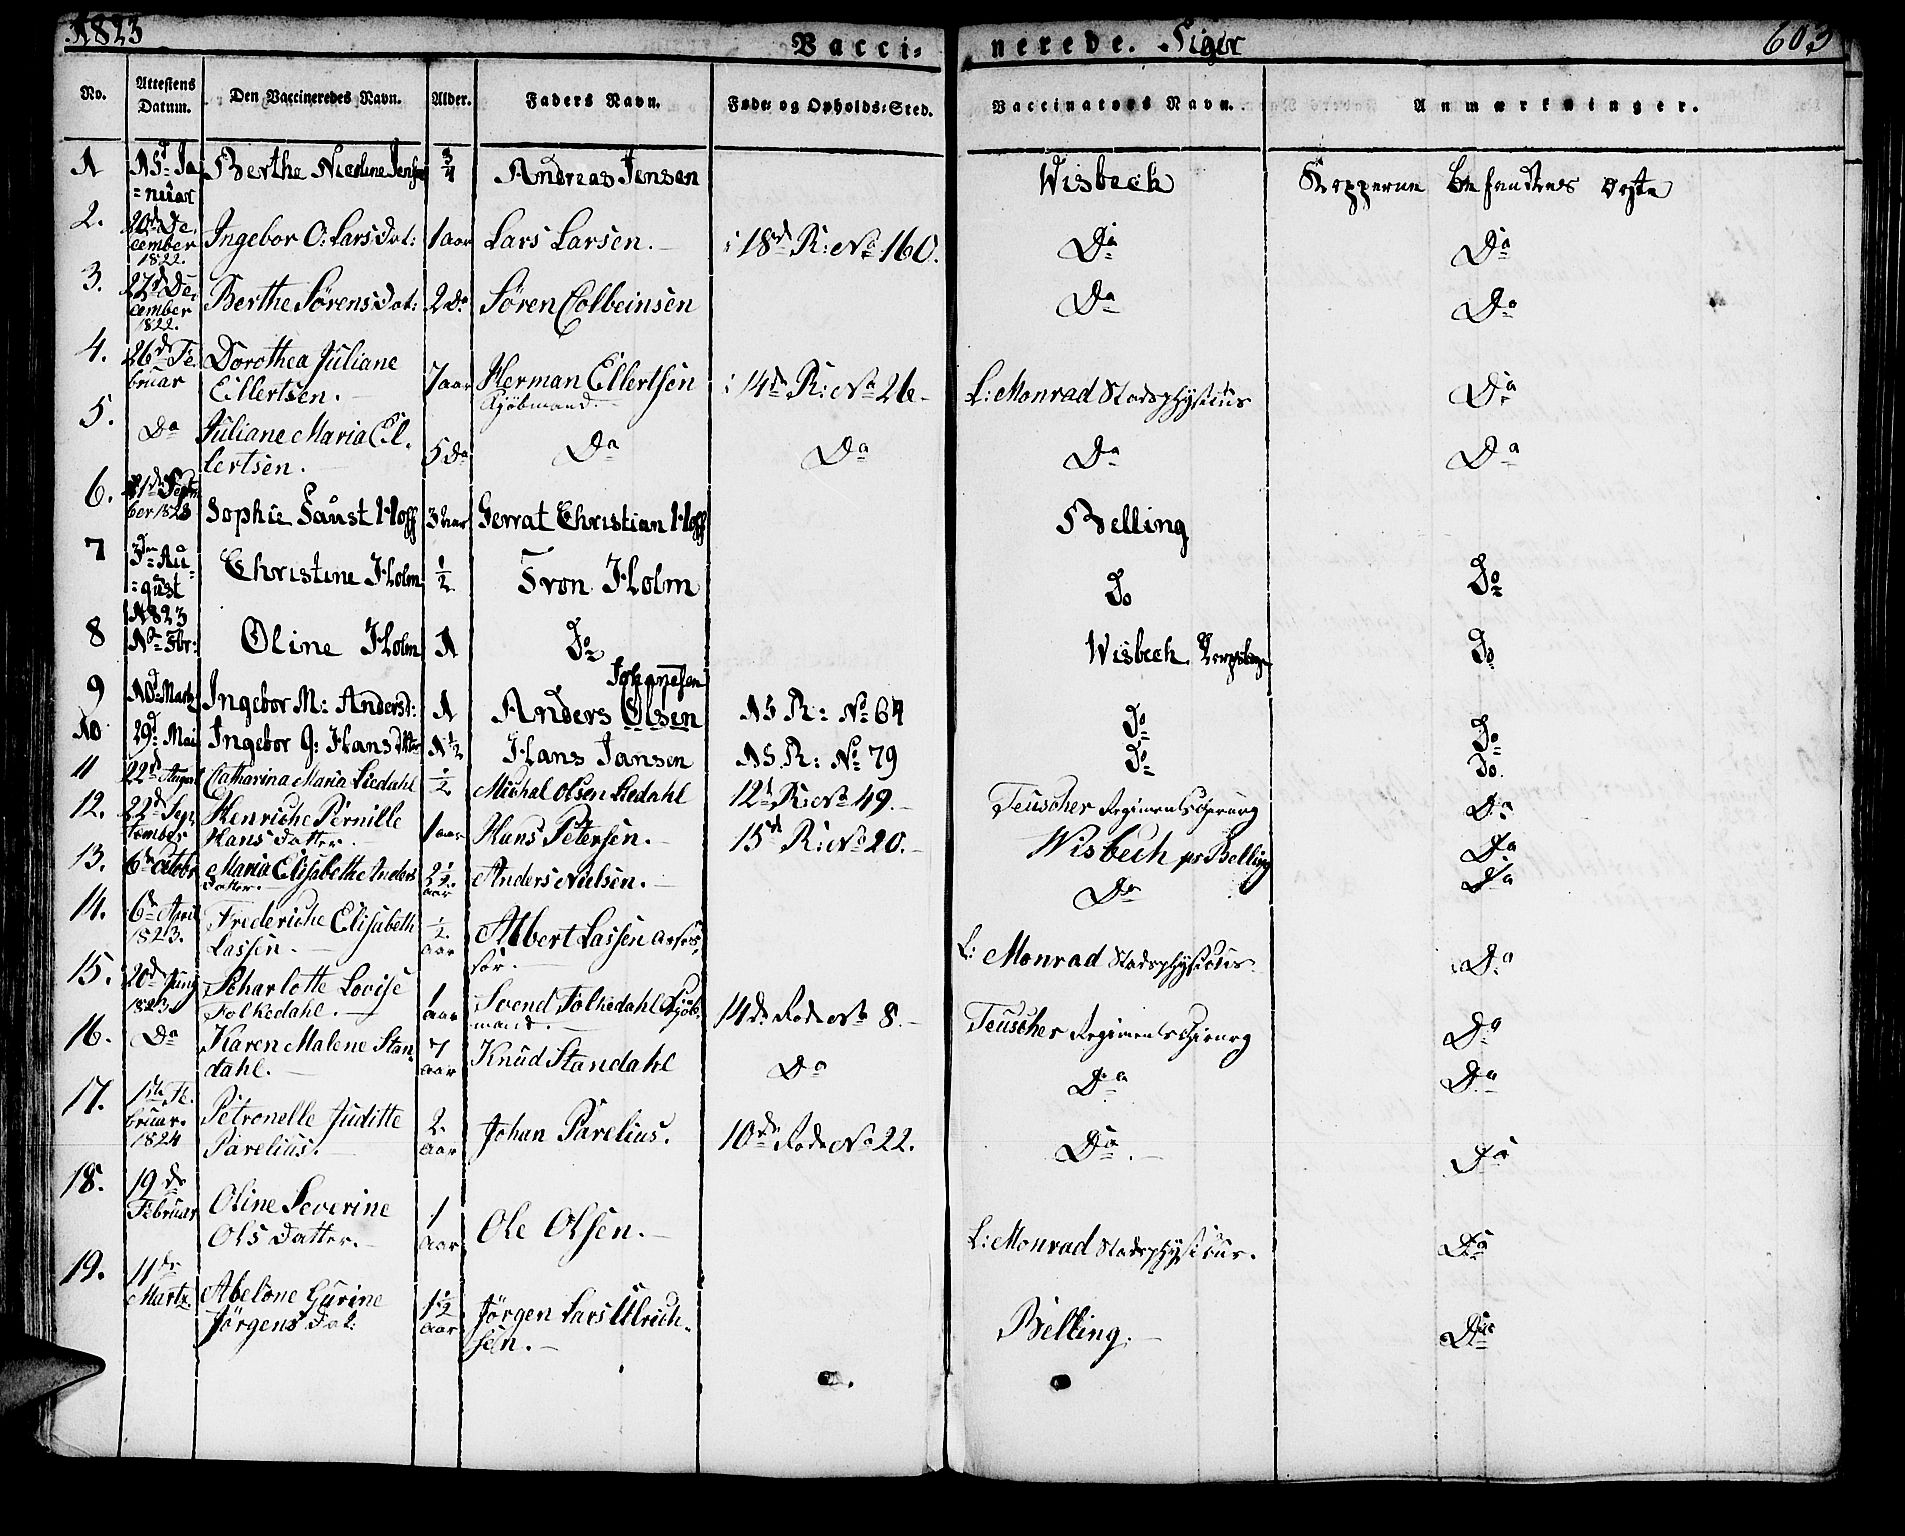 1823 Vacci- nerede. Piger 603
No. Attestens Datum. Den Vaccineredes Navn. Alder. Faders Navn. Føde og Opholds-Sted. Vaccinateurs Navn. Anmærkninger.
1 15d Ja= Berthe Nicoline Jensen 3/4 Andreas Jensen Wisbech Kopperne befundtes ægte
=nuar
2. 20de De,
cember Ingebor O: Larsdat: 1 aar Lars Larsen. i 18d R: No 160. Do Do
1822.
3. 27de De,
cember Berthe Sørensdat: 2 Do Søren Colbeinsen Do Do
1822.
4. 26de Fe Dorothea Juliane
bruar Ellertsen. 7 aar Herman Ellertsen i 14de R: No 26. L: Monrad Stadsphysicus Do
Kjøbmand.
5. Do Juliane Maria El- 5 Do Do Do Do Do
lertsen.
6. Septem
ber 1823 Sophie Faust Hoff 3 aar Gerrat Christian Hoff Belling
7 3de Au= Christine Holm 1/2 Holm Do Do
=gust
1823
8 Oline Holm 1 Do Wisbech Do
Johannesen
9 10d Martz Ingebor M: Andersd: 1 Anders Olsen 15 R: No 64 Do Do
10 29d Mai Ingebor G: Hansdtter 1 1/2 Hans Jansen 15 R: No 79 Do Do.
11 22d August Catharina Maria Liedahl 1/2 Michal Olsen Liedahl 12d R: No 49. Teuscher Regimentschirurg Do
12. 22de Sep, Henriche Pernille
tember Hans datter. 1 aar Hans Petersen. 15d R: No 20. Wisbech pr Belling Do
13. 6te Octobr Maria Elisabethe Anders 2 1/2 Anders Nielsen. Do Do
datter. aar
14. 6te April Frederiche Elisabeth 1/2
1823. Lassen. aar Albert Lassen asses, L: Monrad Stadsphysicus. Do
sor.
15. 20de Juny Scharlotte Lovise 1 Svend Folkedahl Kjøb, 14de Rode No 8. Teuscher Regimentschirurg Do
1823 Folkedahl. aar mand.
16. Do Karen Malene Stan, 7 Knud Standahl Do Do Do
dahl. aar
17. Fe,
bruar. Petronelle Juditte 2. Johan Parelius. 10de Rode No 22. Do. Do
1824 Parelius. aar
18. 19de
Februar Oline Severine 1 Ole Olsen. L: Monrad Stadsphysicus. Do
Ols datter. aar
19. 11te
Martz. Abelone Gurine 1 1/2 Jørgen Lars Ulrich- Belling. Do
Jørgens dat: aar sen.